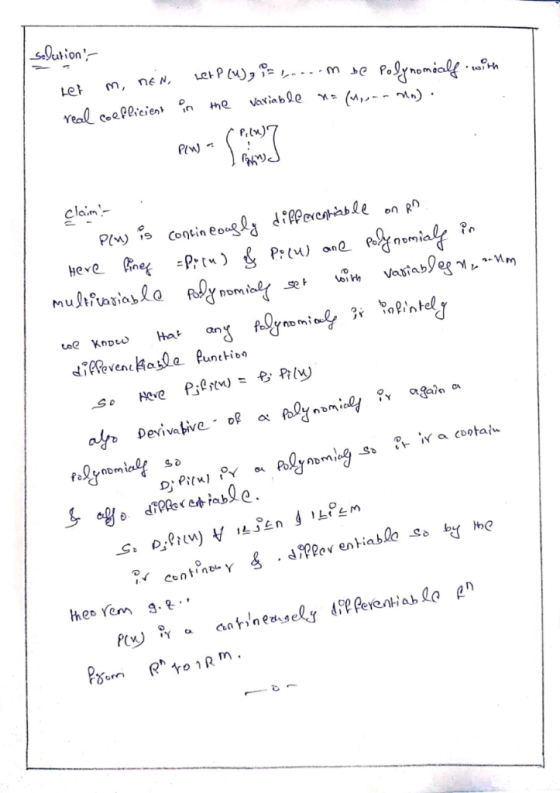 Solution:-
Let m, n∈N. Let P(x), i=1,.....m be Polynomials. with
real coefficient in the variable x= (x1,-- xn).
P(x) = [P1(x) ⋮ Pm(x)]
Claim:-
P(x) is contineously differentiable on Rn
Here =Pi(x) & Pi(x) are Polynomials in
multivariable Polynomials set with variables x1,--xm
we know that any Polynomials is infinitely
differenctiable function
so Here = Pi(x)
also Derivative of a Polynomials is again a
Polynomials so
Dj Pi(x) is a Polynomials so it is a contain
& also differentiable.
So Djfi(x) ∀ 1≤j≤n & 1≤i≤m
is continour & . differentiable so by the
theorem 9.2..
P(x) is a contineously differentiable Rn
from Rn to IRm.
—o—